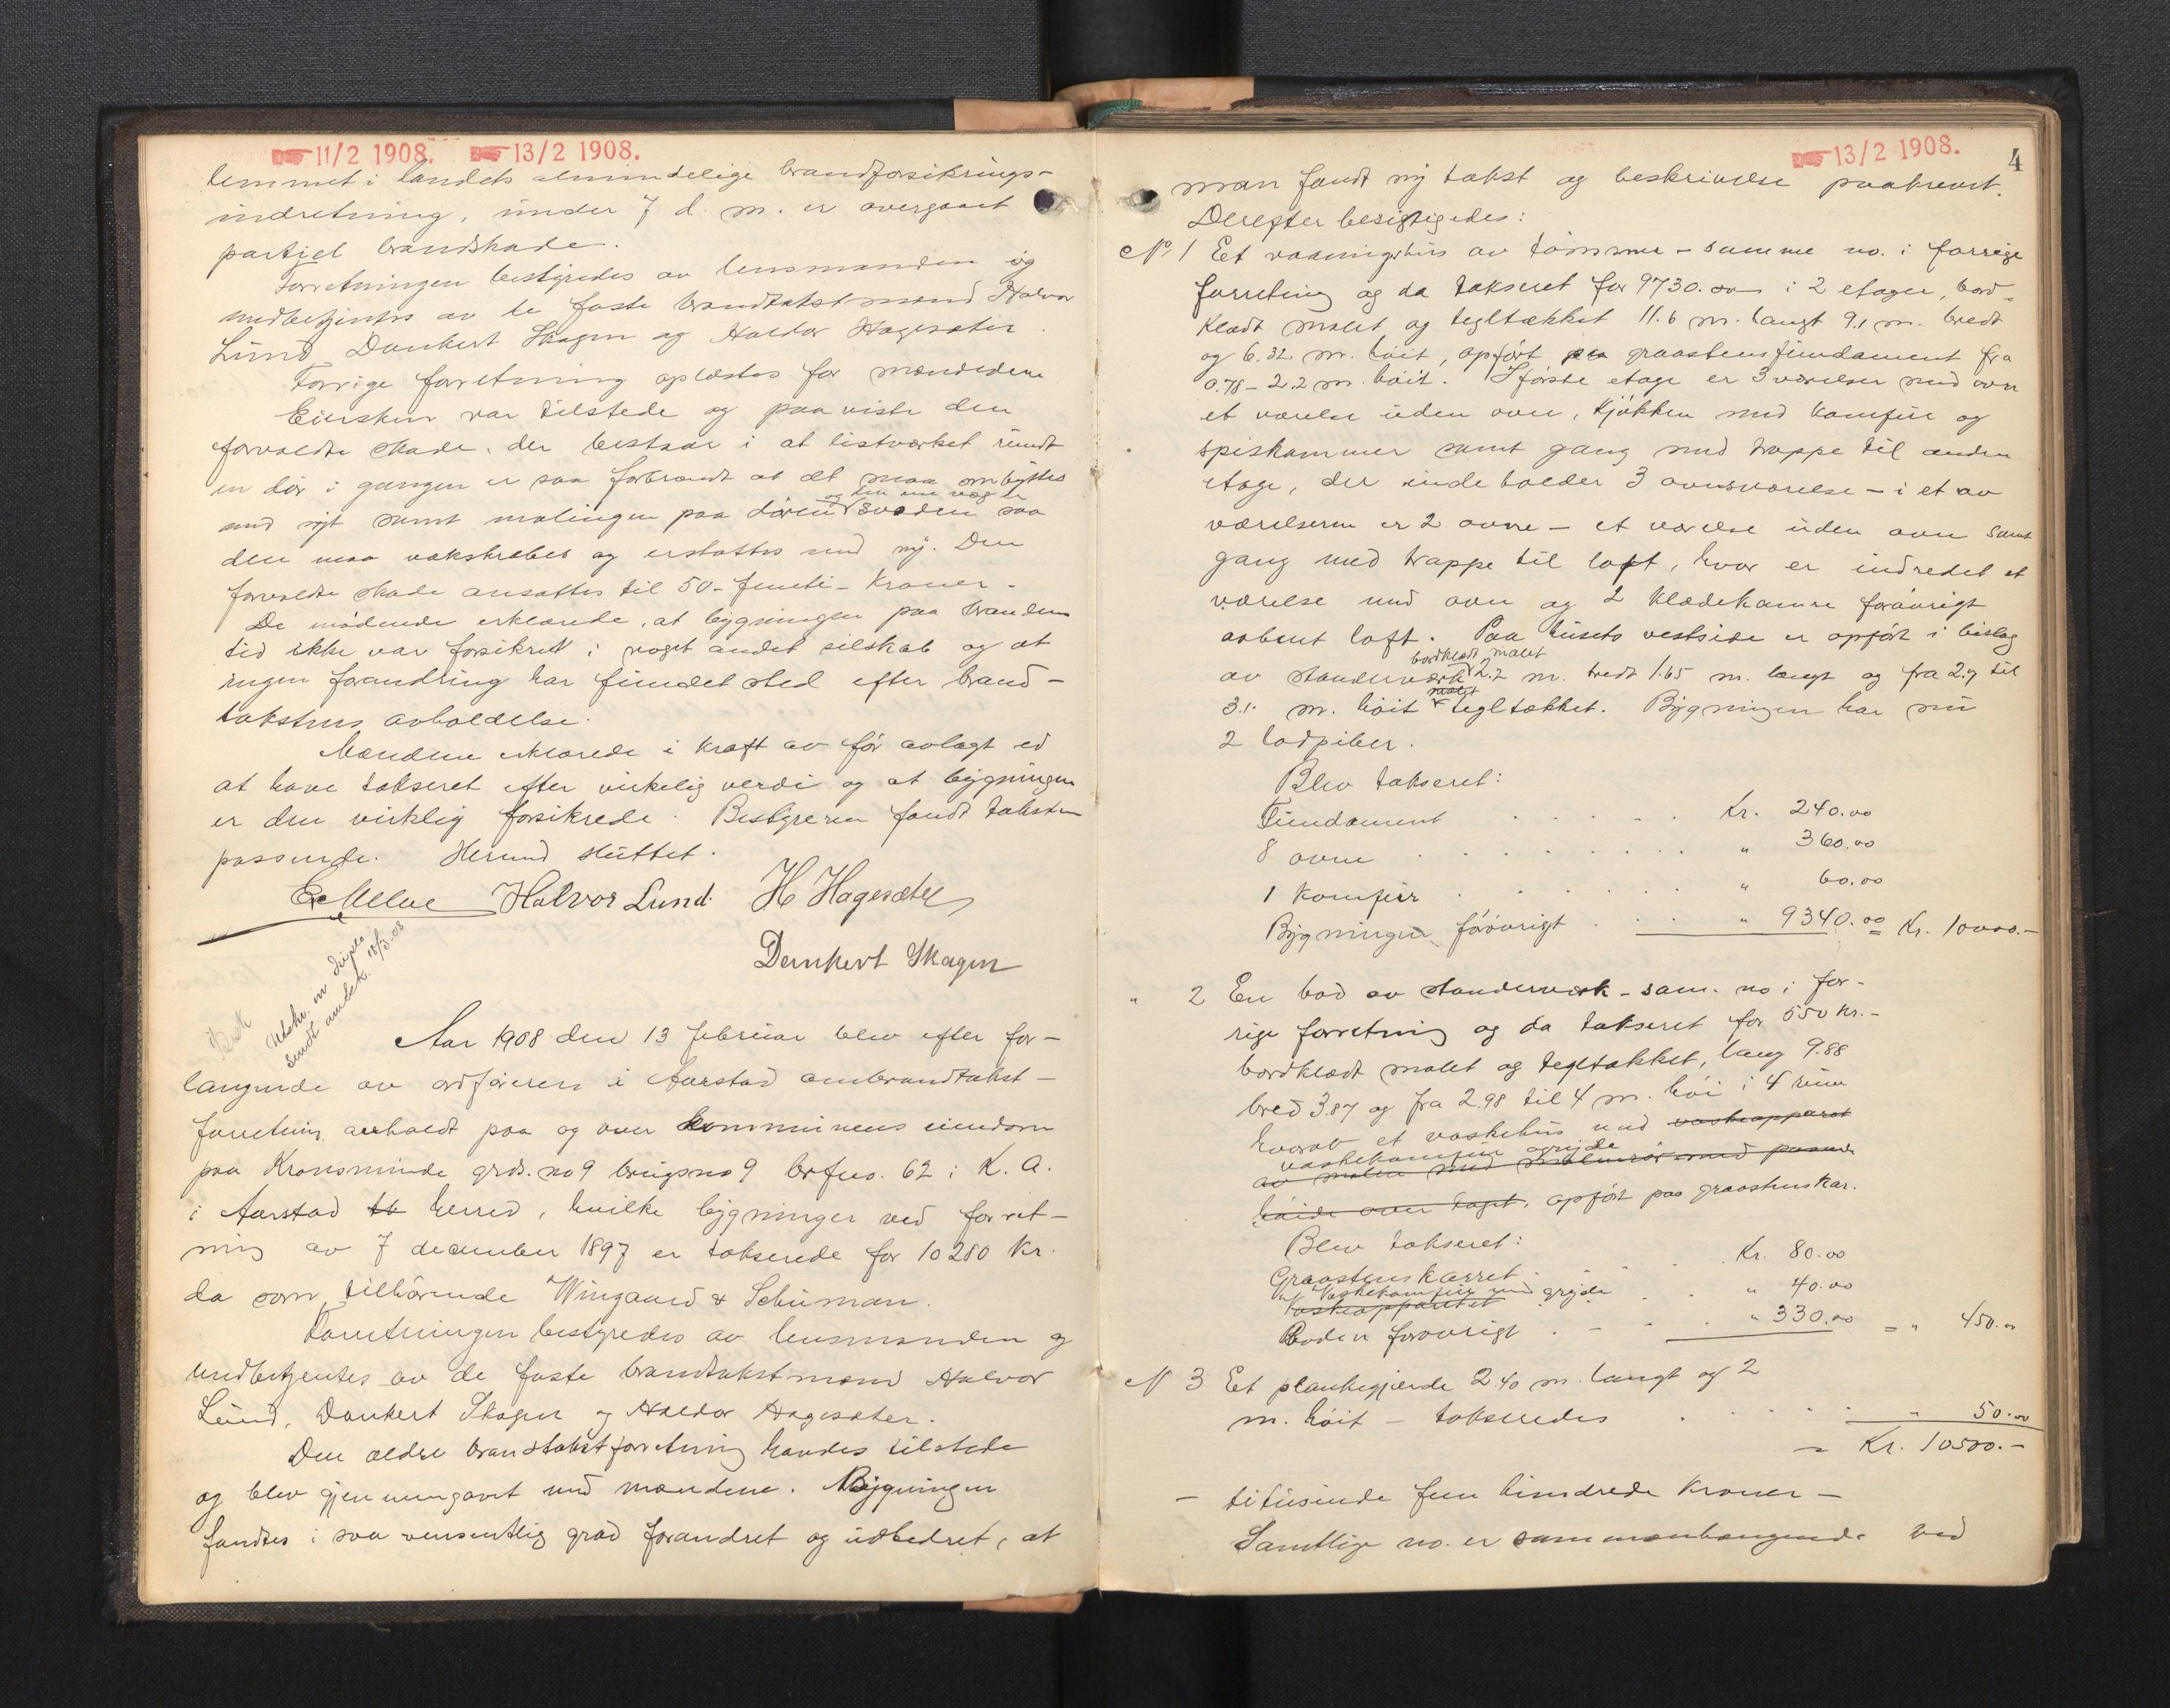 11/2 1908. 13/2 1908.
lemmet i landets almindelige brandforsikrings-
indretning, under 7 d. m. er overgaaet
partiel brandskade.
Forretningen bestyredes av lensmanden og
medbetjentes av de faste brandtakstmænd Halvor
Lund, Dankert Skagen og Haldor Hagesæter.
Forrige forretning oplæstes for mændene
Eiersken var tilstede og paaviste den
forvoldte skade, der bestaar i at listværket rundt
en dör i gangen er saa forbrændt at det maa ombyttes
og den ene væg er
med nyt samt malingen paa dören sveden saa
den maa vækskrabes og erstattes med ny. Den
forvoldte skade ansattes til 50 - femti - kroner -
De mödende erklærede, at bygningen paa brandens
tid ikke var forsikret i noget andet selskab og at
ingen forandring har fundet sted efter brand-
takstens avholdelse.
Mændene erklærede i kraft av för avlagt ed
at have takseret efter virkelig verdi og at bygningen
er den virklig forsikrede. Bestyreren fandt taksten
passende. Hermed sluttet.
Halvor Lund. H Hagesæter
Dankert Skagen
Utskr. in duplo
sendt amtet 18/3.08
Aar 1908 den 13 februar blev efter for-
langende av ordföreren i Aarstad ombrandtakst-
forretning avholdt paa og over kommunens eiendom
paa Kronsminde grds. no 9 brugsno 9 brfno. 62 i K. A.
i Aarstad herred, hvilke bygninger ved forret-
ning av 7 december 1897 er takserede for 10280 Kr.
da som tilhörende Wingaard & Schuman.
Forretningen bestyredes av lensmanden og
medbetjentes av de faste brandtakstmænd Halvor
Lund, Dankert Skagen og Haldor Hagesæter.
Den ældre brandtakstforretning havdes tilstede
og blev gjennemgaaet med mændene. Bygningen
fandtes i saa væsentlig grad forandret og udbedret, at
13/2 1908.
4
man fandt ny takst og beskrivelse paakrævet.
Derefter besigtigedes:
No. 1 Et vaaningshus av tömmer - samme no. i forrige
forretning og da takseret for 9730.00 i 2 etager, bord-
klædt malet og tegltækket 11.6 m. langt 9.1 m. bredt
og 6.32 m. höit, opfört paa graastensfundament fra
0.78 - 2.2 m. höit. I förste etage er 3 værelser med ovn
et værelse uden ovn, kjökken med komfur og
spiskammer samt gang med trappe til anden
etage, der indeholder 3 ovnsværelse - i et av
værelserne er 2 ovne - et værelse uden ovn samt
gang med trappe til loft, hvor er indredet et
værelse med ovn og 2 klædekamre forövrigt
aabent loft. Paa husets vestside er opfört i bislag
bordklædt, malet
av standerværk 2.2 m. bredt 1.65 m. langt og fra 2.7 til
malet
3.1 m. höit & tegltækket. Bygningen har nu
2 ladpiber.
Blev takseret:
Fundament . . . . . Kr. 240.00
8 ovne . . . . . . . . . " 360.00
1 komfur . . . . . . . " 60.00
Bygningen förövrigt . . . " 9340.00 = Kr. 10000.-
" 2 En bod av standerværk - sam. no i for-
rige forretning og da takseret for 550 Kr. -
bordklædt malet og tegltækket, lang 9.88
bred 3.87 og fra 2.98 til 4 m. höi i 4 rum
hvorav et vaskehus med vaskeapparat
vaskekomfur gryde
höide over taget, opfört paa graastenskar.
Blev takseret:
Graastenskarret . . . Kr. 80.00
Vaskekomfur med gryde . . " 40.00
Vaskeapparatet
Boden forövrigt . - . . " 330.00 = " 450.00
N 3 Et plankegjærde 2.40 m. langt og 2
m. höit - takseredes . . . . . " 50.00
= Kr. 10500.-
- titusinde fem hundrede kroner -
Samtlige no. er sammenhængende ved